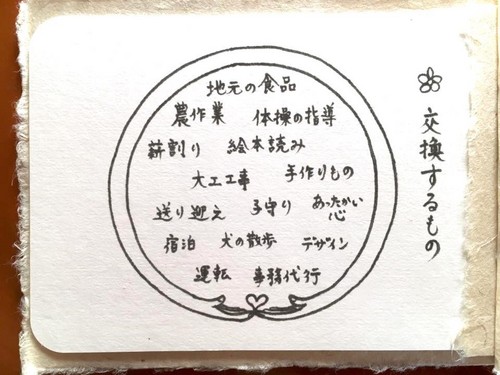 交換するもの
地元の食品
農作業 体操の指導
薪割り 絵本読み
大工工事 手作りもの
送り迎え 子守り あったかい心
宿泊 犬の散歩 デザイン
運転 事務代行